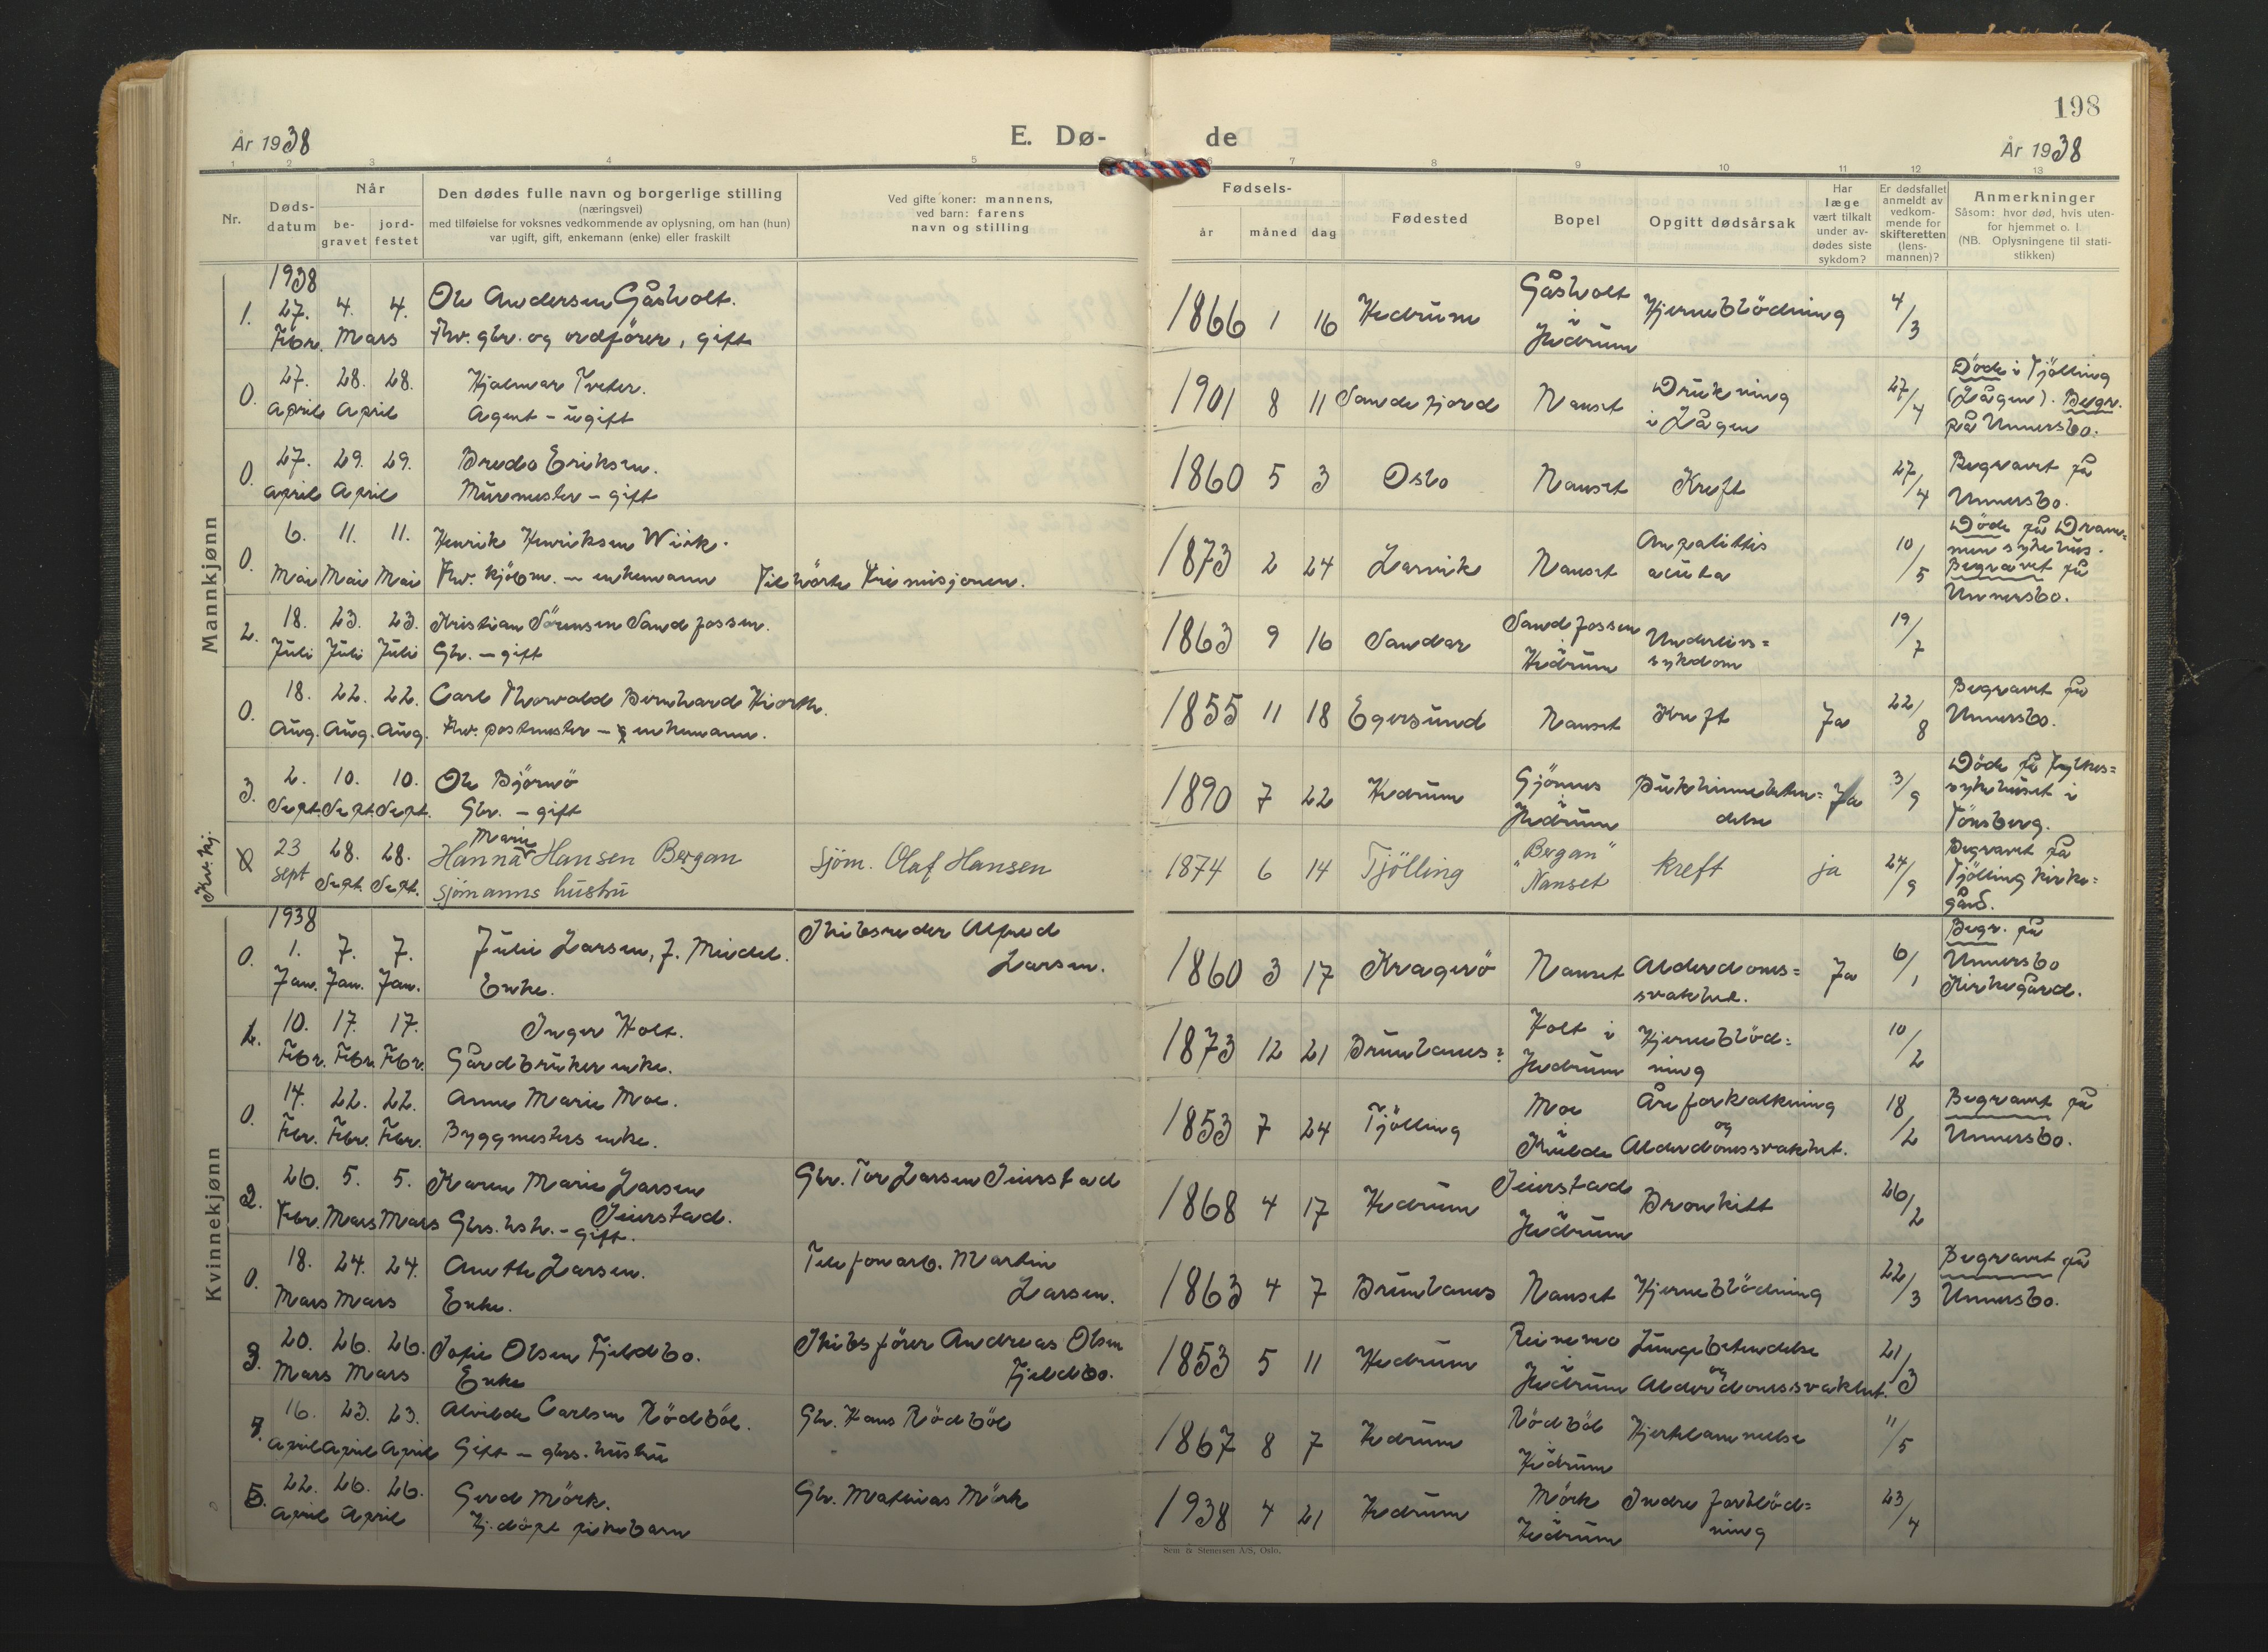 198
År 1938
E. Dø-
de
År 1938
1 2 3 4 5 6 7 8 9 10 11 12 13
Nr.
Døds-
datum
Når
be-
gravet
jord-
festet
Den dødes fulle navn og borgerlige stilling
(næringsvei)
med tilføielse for voksnes vedkommende av oplysning, om han (hun)
var ugift, gift, enkemann (enke) eller fraskilt
Ved gifte koner: mannens,
ved barn: farens
navn og stilling
Fødsels-
år måned dag
Fødested
Bopel
Opgitt dødsårsak
Har
læge
vært tilkalt
under av-
dødes siste
sykdom?
Er dødsfallet
anmeldt av
vedkom-
mende for
skifteretten
(lens-
mannen)?
Anmerkninger
Såsom: hvor død, hvis uten-
for hjemmet o. l.
(NB. Oplysningene til stati-
stikken)
Mannkjønn
1938
1. 27. 4. 4. Ole Andersen Gåsholt. 1866 1 16 Hedrum Gåsholt Hjerneblödning 4/3
Febr. Mars Fhv. gbr. og ordförer, gift i
Hedrum
0. 27. 28. 28. Hjalmar Tveter. 1901 8 11 Sandefjord Nanset Drukning 27/4 Döde i Tjölling
april April Agent – ugift i Lågen (Lågen). Begr.
på Undersbo.
0. 27. 29. 29. Bredo Eriksen. 1860 5 3 Oslo Nanset Kreft 27/4 Begravet på
april April Murmester – gift Undersbo.
0. 6. 11. 11. Henrik Henriksen Wiik. 1873 2 24 Larvik Nanset 10/5 Döde på Dram-
Mai Mai Mai Fhv. kjöbm. – enkemann Tilhörte Frimisjonen. acuta men sykehus.
Begravet på
Undersbo.
2. 18. 23. 23. Kristian Sörensen Sandfossen. 1863 9 16 Sandar Sandfossen Underlivs= 19/7
Juli Juli Juli Gbr. – gift i Hedrum sykdom
0. 18. 22. 22. Carl Thorvald Bernhard Hiorth. 1855 11 18 Egersund Nanset Kreft Ja 22/8 Begravet på
Aug. Aug. Aug. Fhv. postmester – enkemann. Undersbo.
3. 2. 10. 10. Ole Björnö 1890 7 22 Hedrum Gjönnes Bukhinnebeten= Ja 3/9 Döde på fylkes=
Sept. Sept. Sept. Gbr. – gift i Hedrum delse sykehuset i
Tönsberg.
Kv. kj.
0 23 28. 28. Hanna Marie Hansen Bergan sjöm. Olaf Hansen 1874 6 14 Tjölling "Bergan" kreft ja 24/9 Begravet på
sept Sept. Sept. sjömanns hustru Nanset Tjölling kirke=
gård.
Kvinnekjønn
1938
0. 1. 7. 7. Julie Larsen, f. Meidel. Skibsreder Alfred 1860 3 17 Kragerö Nanset Alderdoms= Ja 6/1 Begr. på
Jan. Jan. Jan. Enke. Larsen. svakhet. Undersbo
Kirkegård.
1. 10. 17. 17. Inger Holt. 1873 12 21 Brunlanes: Holt i Hjerneblöd= 10/2
Febr. Febr. Febr. Gårdbrukerenke. Hedrum ning
0. 14. 22. 22. Anne Marie Moe. 1853 7 24 Tjölling Moe Åreforkalkning 18/2 Begravet på
Febr. Febr. Febr. Byggmesters enke. i og Alderdomssvakhet. Undersbo.
2. 26. 5. 5. Karen Marie Larsen Gbr. Tor Larsen Seierstad 1868 4 17 Hedrum Seierstad Bronkitt 26/2
Febr. Mars Mars Gbrs. hsh. – gift. Seierstad. i Hedrum
0. 18. 24. 24. Anethe Larsen. Telefonarb. Martin 1863 4 7 Brunlanes Nanset Hjerneblödning 22/3 Begravet på
Mars Mars Enke. Larsen. Undersbo.
3. 20. 26. 26. Sofie Olsen Fjeldbo. Skibsförer Andreas Olsen 1853 5 11 Hedrum Reinemo Lungebetendelse 21/3
Mars Mars Enke Fjeldbo. i Hedrum og Alderdomssvakhet.
16. 23. 23. Alvilde Carlsen Rödböl. Gbr. Hans Rödböl 1867 8 7 Hedrum Rödböl Hjertelammelse 11/5
april april april Gift – gbrs. hustru i Hedrum
5. 22. 26. 26. Gerd Mörk. Gbr. Mathias Mörk 1938 4 21 Hedrum Mörk Indre forblöd= 23/4
april April Hj. döpt pikebarn i Hedrum ning
Sem & Stenersen A/S, Oslo.